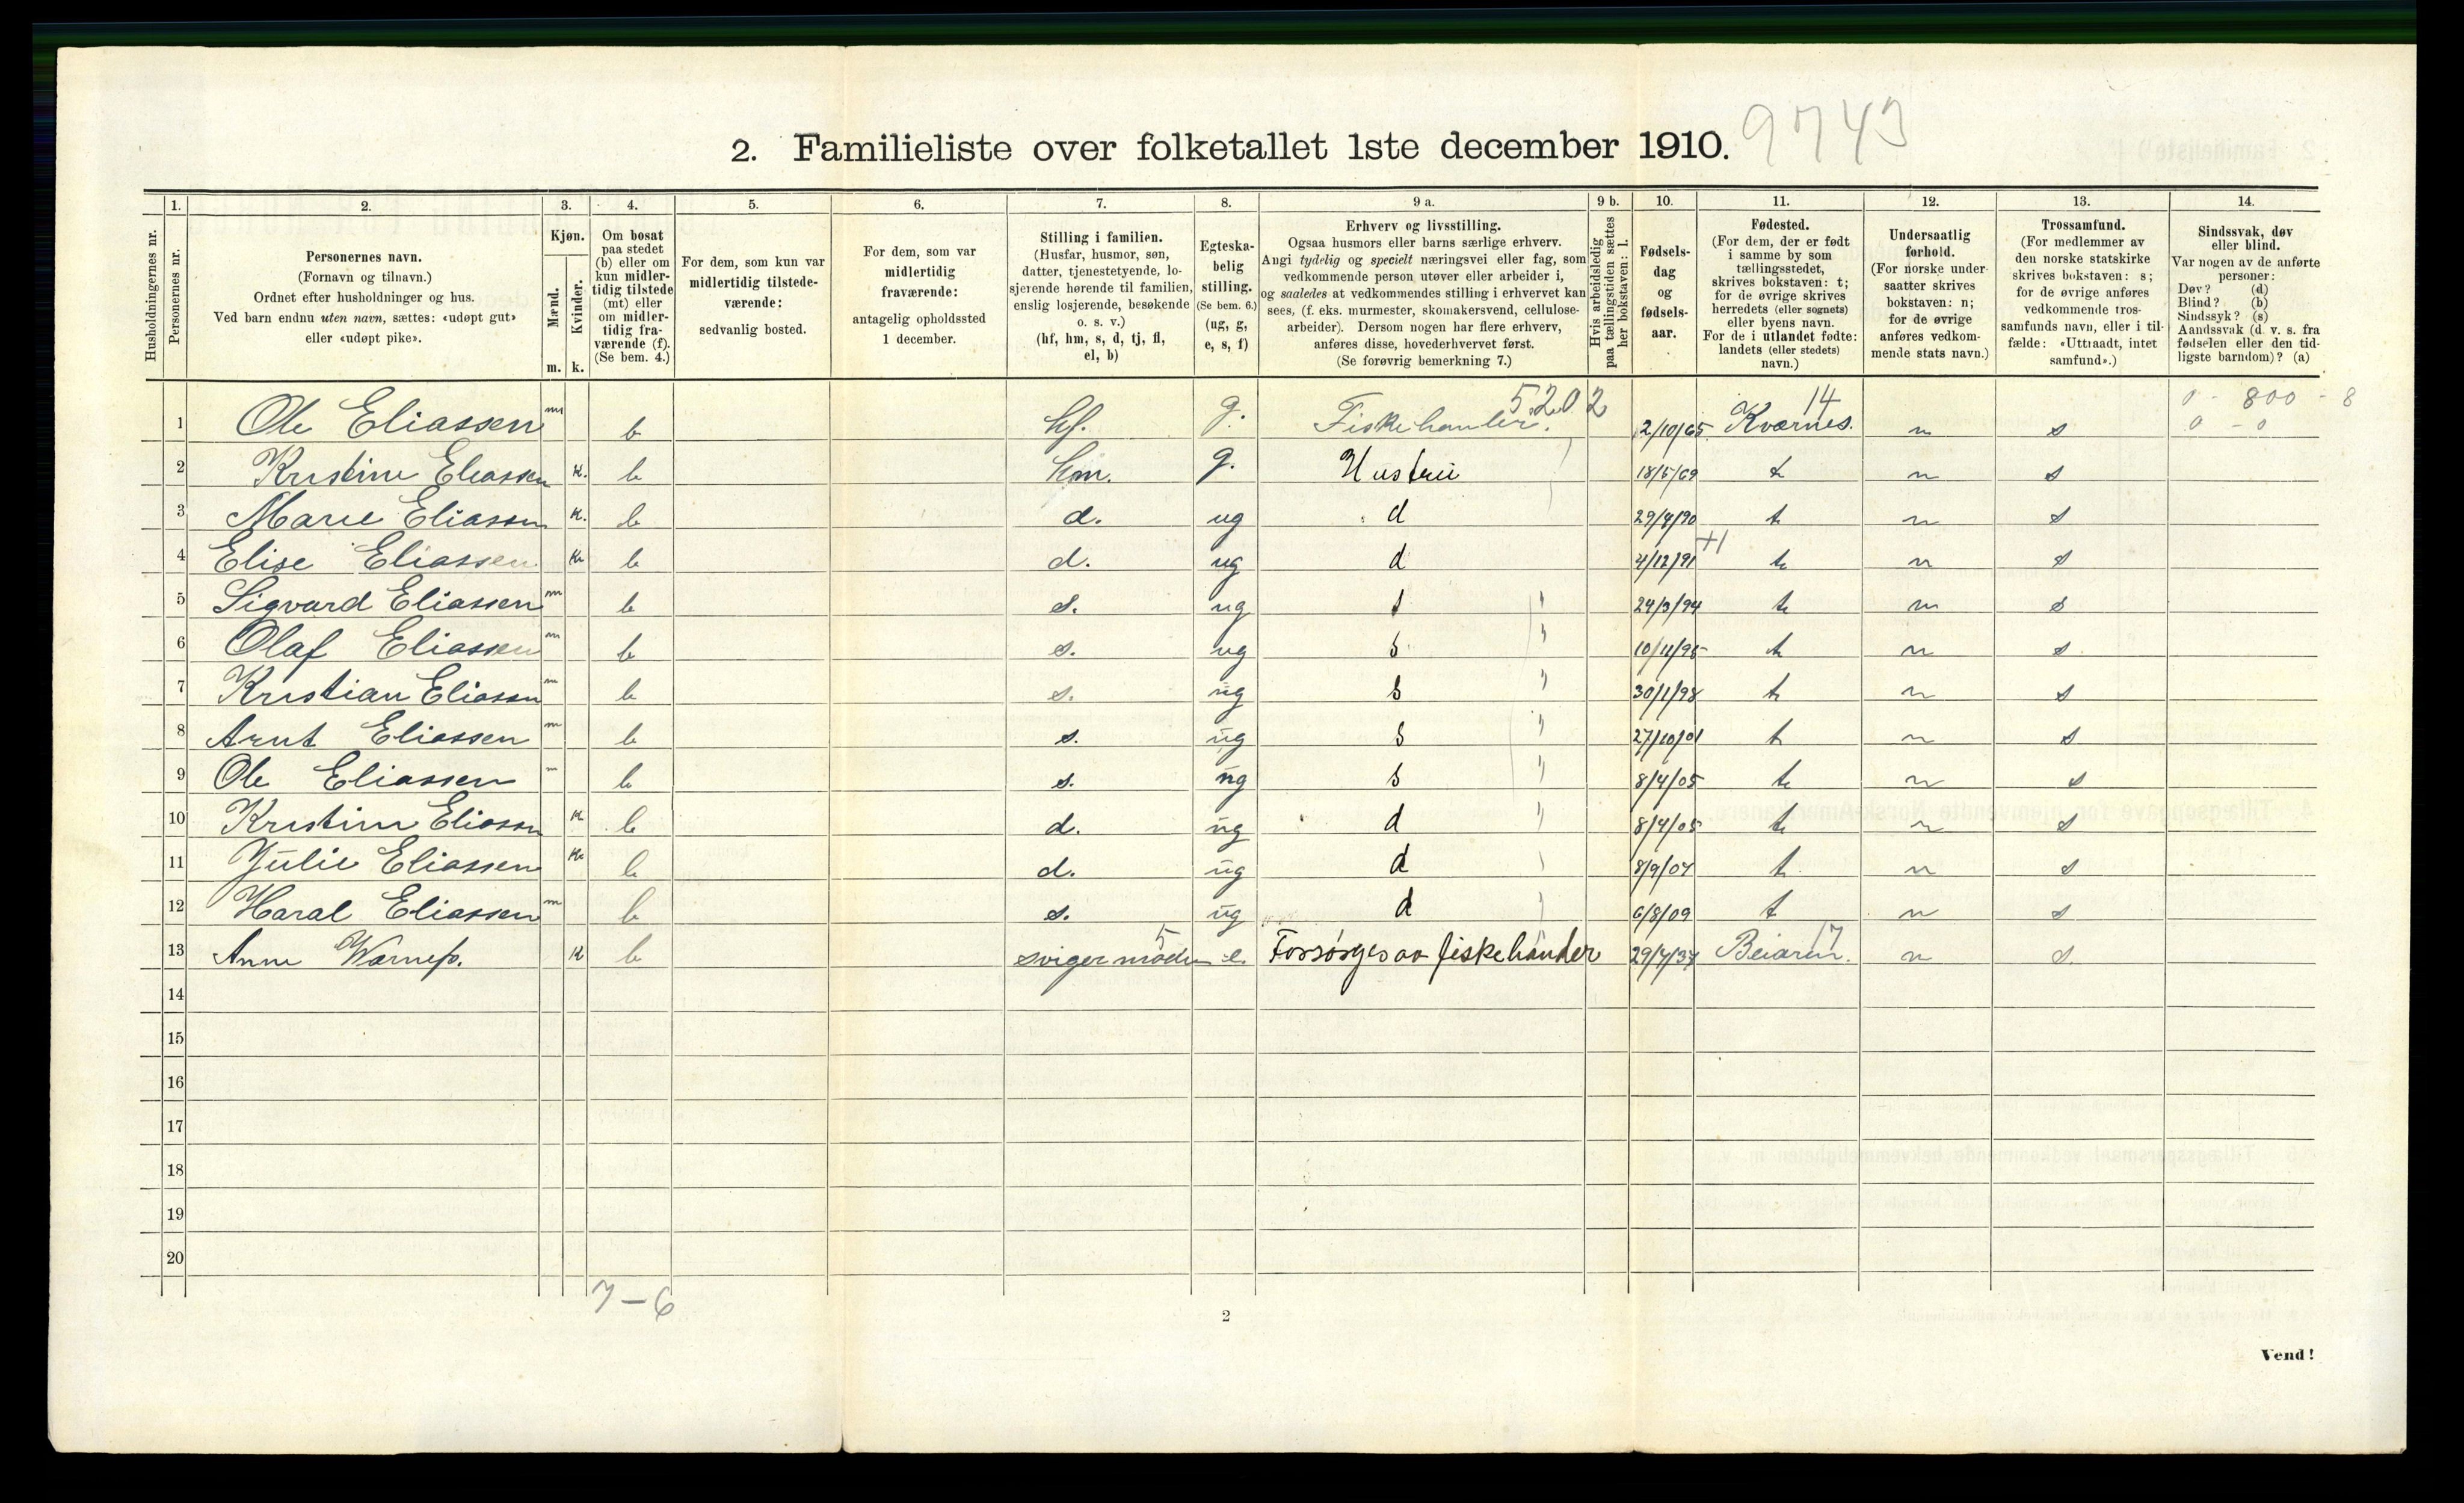 2. Familieliste over folketallet 1ste december 1910. 9743
Husholdningernes nr.
1. Personernes nr.
2. Personernes navn. (Fornavn og tilnavn.) Ordnet efter husholdninger og hus. Ved barn endnu uten navn, sættes: «udøpt gut» eller «udøpt pike».
3. Kjøn. Mænd. m. Kvinder. k.
4. Om bosat paa stedet (b) eller om kun midlertidig tilstede (mt) eller om midlertidig fraværende (f). (Se bem. 4.)
5. For dem, som kun var midlertidig tilstedeværende: sedvanlig bosted.
6. For dem, som var midlertidig fraværende: antagelig opholdssted 1 december.
7. Stilling i familien. (Husfar, husmor, søn, datter, tjenestetyende, losjerende hørende til familien, enslig losjerende, besøkende o. s. v.) (hf, hm, s, d, tj, fl, el, b)
8. Egteskabelig stilling. (Se bem. 6.) (ug, g, e, s, f)
9 a. Erhverv og livsstilling. Ogsaa husmors eller barns særlige erhverv. Angi tydelig og specielt næringsvei eller fag, som vedkommende person utøver eller arbeider i, og saaledes at vedkommendes stilling i erhvervet kan sees, (f. eks. murmester, skomakersvend, cellulosearbeider). Dersom nogen har flere erhverv, anføres disse, hovederhvervet først. (Se forøvrig bemerkning 7.)
9 b. Hvis arbeidsledig paa tællingstiden sættes her bokstaven: l.
10. Fødselsdag og fødselsaar.
11. Fødested. (For dem, der er født i samme by som tællingsstedet, skrives bokstaven: t; for de øvrige skrives herredets (eller sognets) eller byens navn. For de i utlandet fødte: landets (eller stedets) navn.)
12. Undersaatlig forhold. (For norske undersaatter skrives bokstaven: n; for de øvrige anføres vedkommende stats navn.)
13. Trossamfund. (For medlemmer av den norske statskirke skrives bokstaven: s; for de øvrige anføres vedkommende trossamfunds navn, eller i tilfælde: «Uttraadt, intet samfund».)
14. Sindssvak, døv eller blind. Var nogen av de anførte personer: Døv? (d) Blind? (b) Sindssyk? (s) Aandssvak (d. v. s. fra fødselen eller den tidligste barndom)? (a)
5202 14 0 - 800 - 8
1 Ole Eliassen m b hf. g. Fiskehanler. 2/10/65 Kværnes. n s 0 - 0
2 Kristine Eliassen k. b hm. g. Hustru 18/5/69 t n s
3 Marie Eliassen k. b d. ug d 29/4/90 t n s
4 Elise Eliassen k b d. ug d 4/12/91 +1 t n s
5 Sigvard Eliassen m b s. ug s 24/3/94 t n s
6 Olaf Eliassen m b s. ug s 10/11/95 t n s
7 Kristian Eliassen m b s. ug s 30/1/98 t n s
8 Arnt Eliassen m b s. ug s 27/10/01 t n s
9 Ole Eliassen m b s. ug s 8/4/05 t n s
10 Kristine Eliassen k b d. ug d 8/4/05 t n s
11 Julie Eliassen k b d. ug d 8/9/07 t n s
12 Haral Eliassen m b s. ug d 6/8/09 t n s
5 17
13 Anne k b svigermoder e. Forsørges av fiskehander 29/4/37 Beiaren. n s.
14
15
16
17
18
19
20
7 - 6
2
Vend!